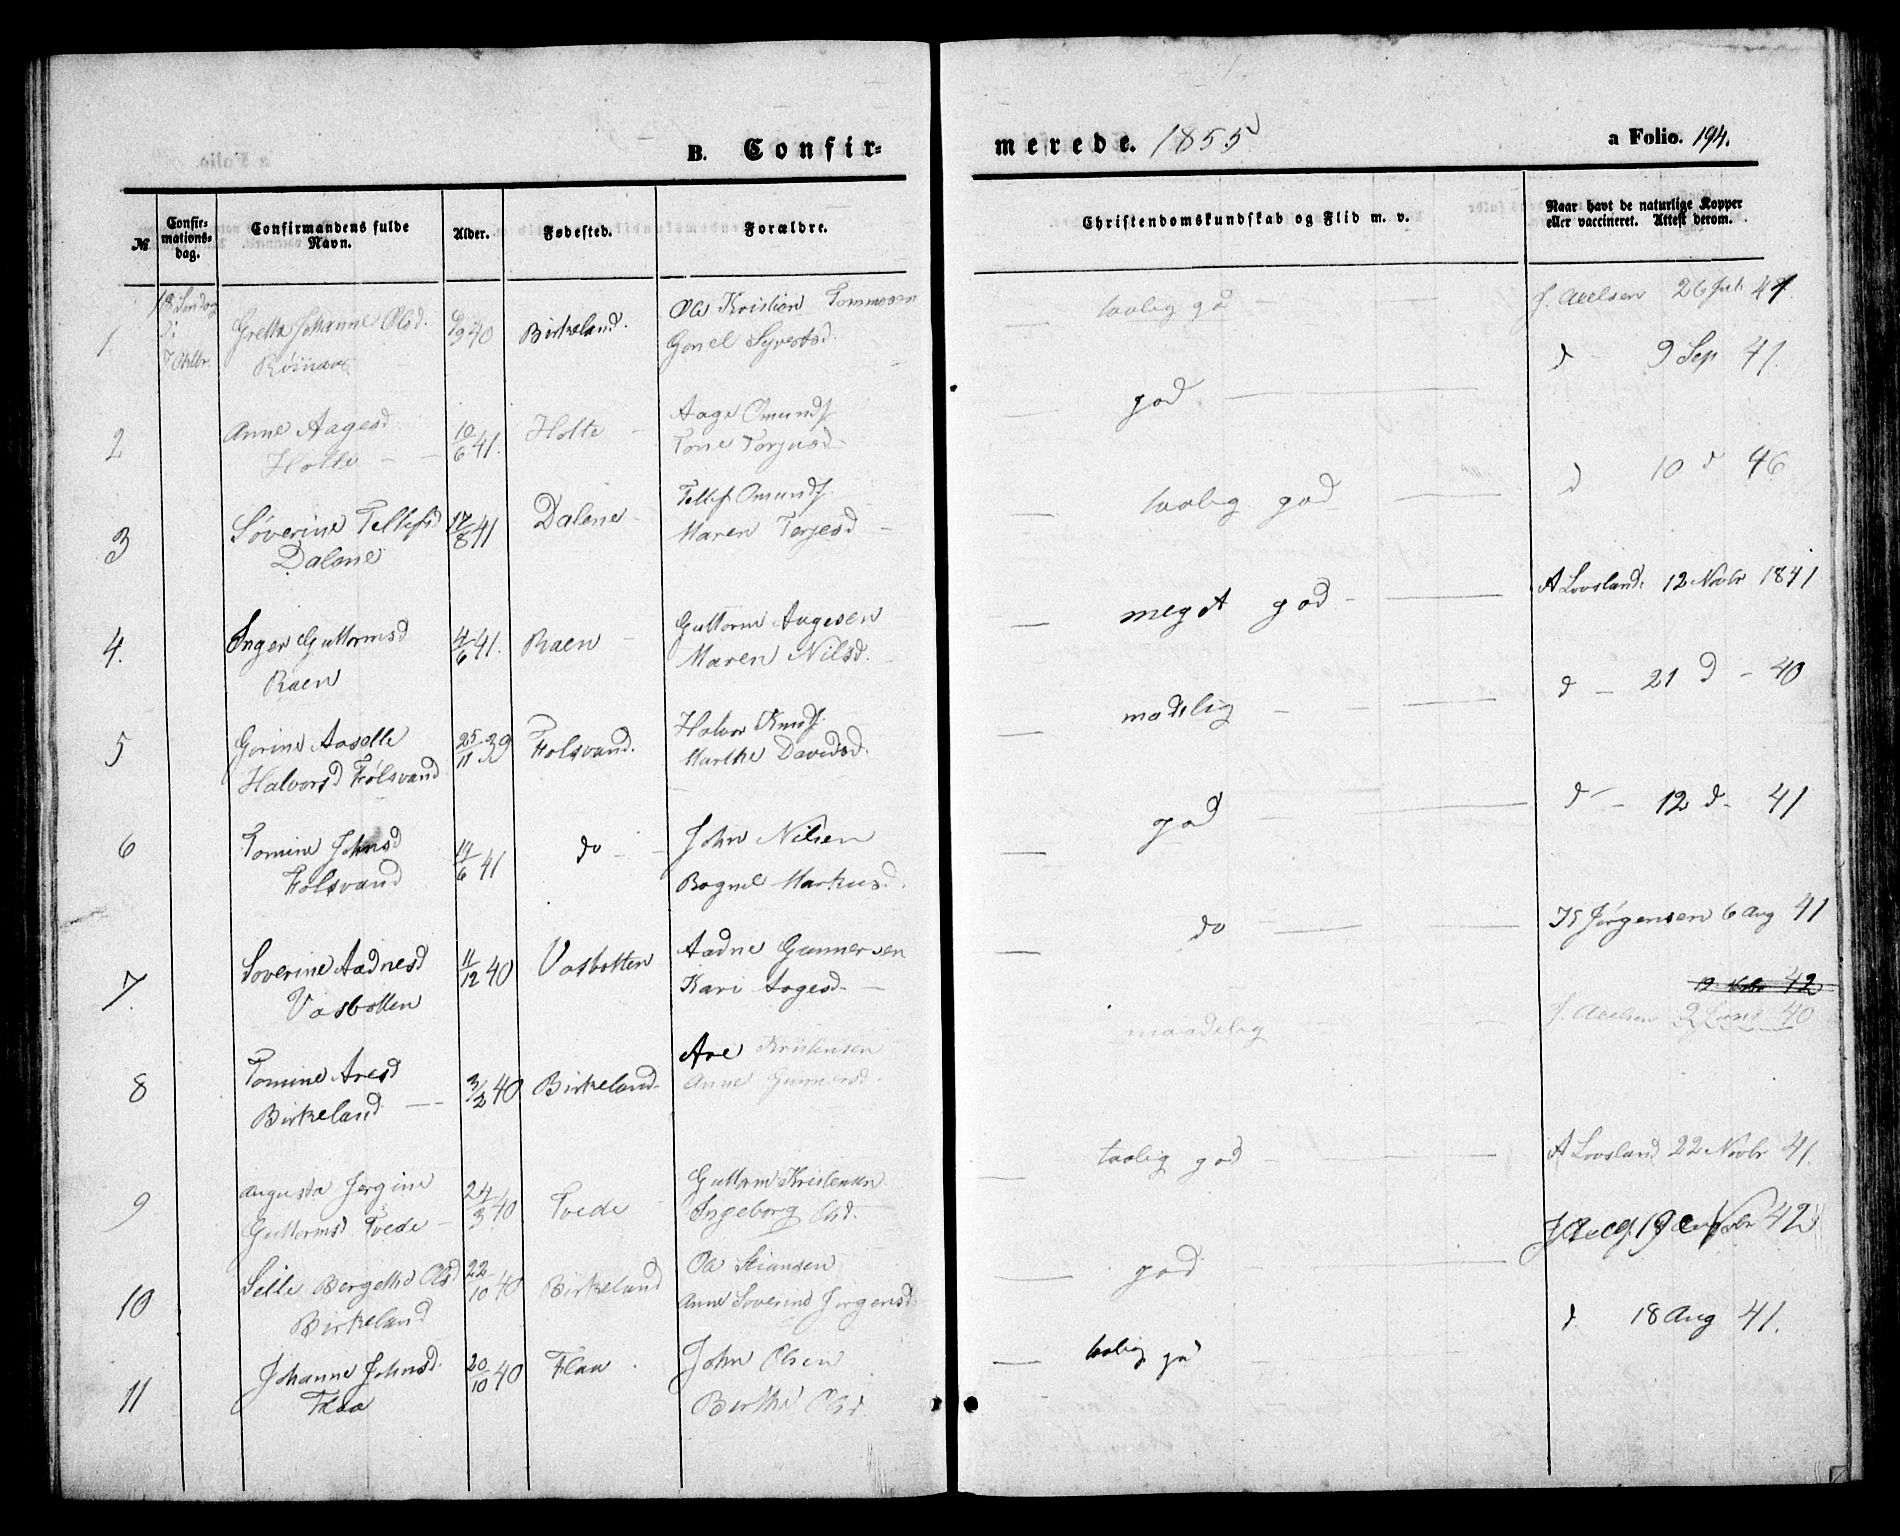 B. Confir-
merede. 1855
a Folio. 194.
№
Confir-
mations-
dag.
Confirmandens fulde
Navn.
Alder.
Fødested.
Forældre.
Christendomskundskab og Flid m. v.
Naar havt de naturlige Kopper
eller vaccineret. Attest derom.
1
18 Søndag
7 Octbr.
Grethe Johanne Olsd.
6/9 40
Birkeland.
Ole Kristian Tommesen
Gonel Syvertsd.
taalig gd
J. Axelsen 26 Juli 41.
2
Anne Aagesd
Holte
10/6 41.
Holte
Aage Omundsf
Tone Torjusd
god
d 9 Sep 41.
3
Søverine Tellefsd
Dalene
17/8 41
Dalene
Tellef Omundsf.
Maren Terjesd
taalig god
d 10 d 46
4.
Inger Guttormsd
Raen
4/6 41.
Raen
Guttorm Aagesen
Maren Nilsd.
meget god
A Lovsland. 12 Novbr 1841
5
Gorine Aaselle
Halvorsd Følsvand
25/11 39
Følsvand.
Halvor Knudsf.
Marthe Davidsd.
madelig
d 21 d 40
6
Tomine Johnsd
Følsvand
19/6 41
do
John Nilsen
Bognel Markusd.
god
d 12 d 41
7.
Soverine Aadnesd
Vasbotten
11/12 40
Vasbotten
Aadne Gunnersen
Kari Aagesd.
do
Jørgensen 6 Aug 41
19 Novbr 42
8
Tomine Aresd
Birkeland
3/2 40
Birkeland.
Are Kristensen
Anne Gunnersd.
maadelig
J. Axelsen 2 Juni 40
9
Augusta Jørgine
Guttormsd Tvede
24/3 40
Tvede
Guttorm Kristensen
Ingeborg Olsd.
taalig god
A Lovsland 22 Novbr 41.
10
Sille Bergethe Olsd
Birkeland
22/10 40
Birkeland
Ole Stiansen
Anne Soverine Jørgensd.
god
19 Novbr 42
11
Johanne Johnsd.
Flaa
20/10 40
Flaa
John Olsen
Berthe Olsd.
taalig gd
d. 18 Aug 41.